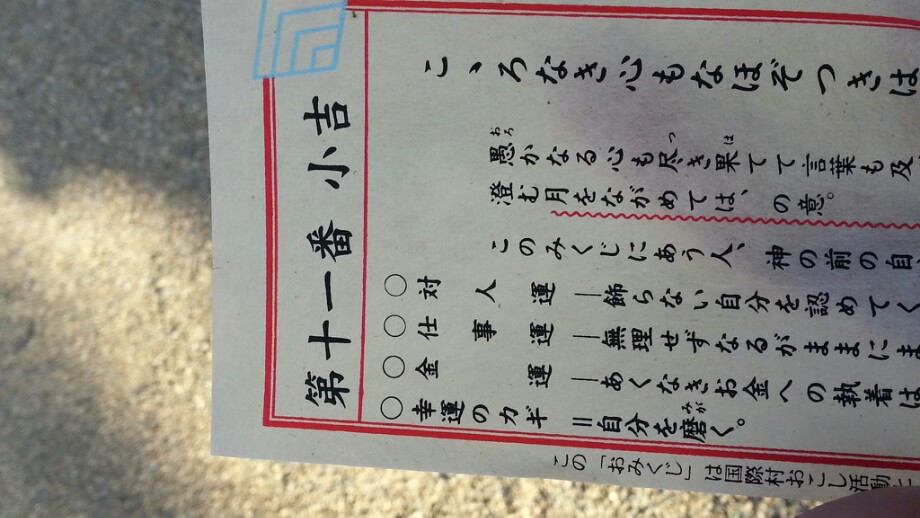 第十一番 小吉
こゝろなき心もなほぞつきは
愚かなる心も尽き果てて言葉も及
澄む月をながめては、の意。
このみくじにあう人、神の前の自
○対人運―飾らない自分を認めてく
○仕事運―無理せずなるがままにま
○金運―あくなきお金への執着は
○幸運のカギ=自分を磨く。
この「おみくじ」は国際村おこし活動に